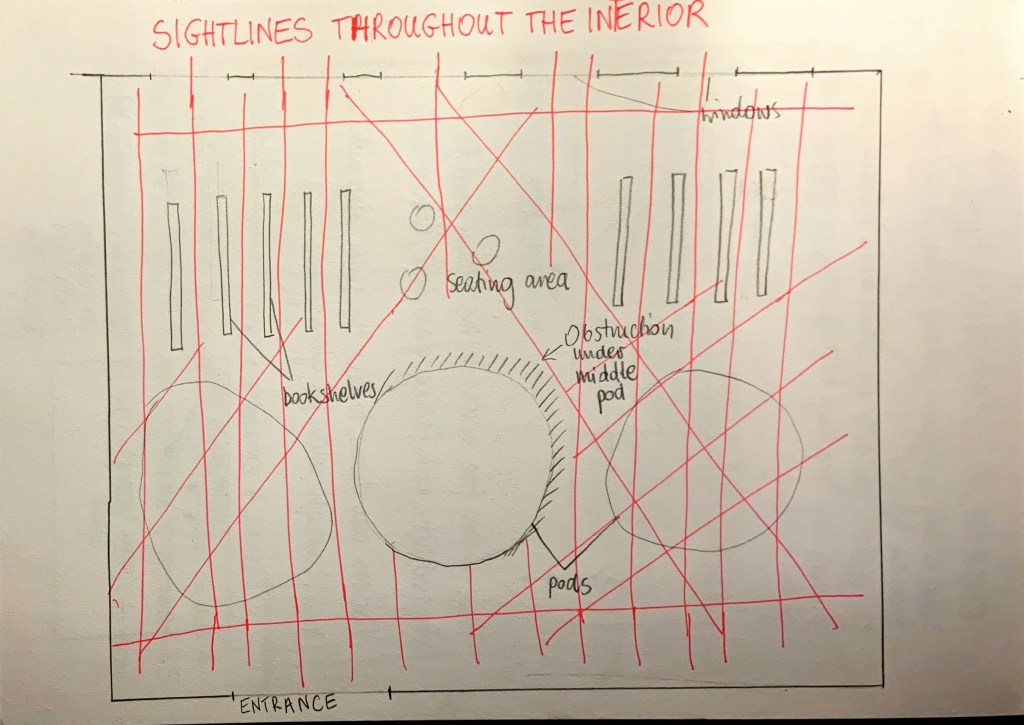 SIGHTLINES THROUGHOUT THE INERIOR
windows
seating area
Obstruction
under
middle
pod
bookshelves
pods
ENTRANCE